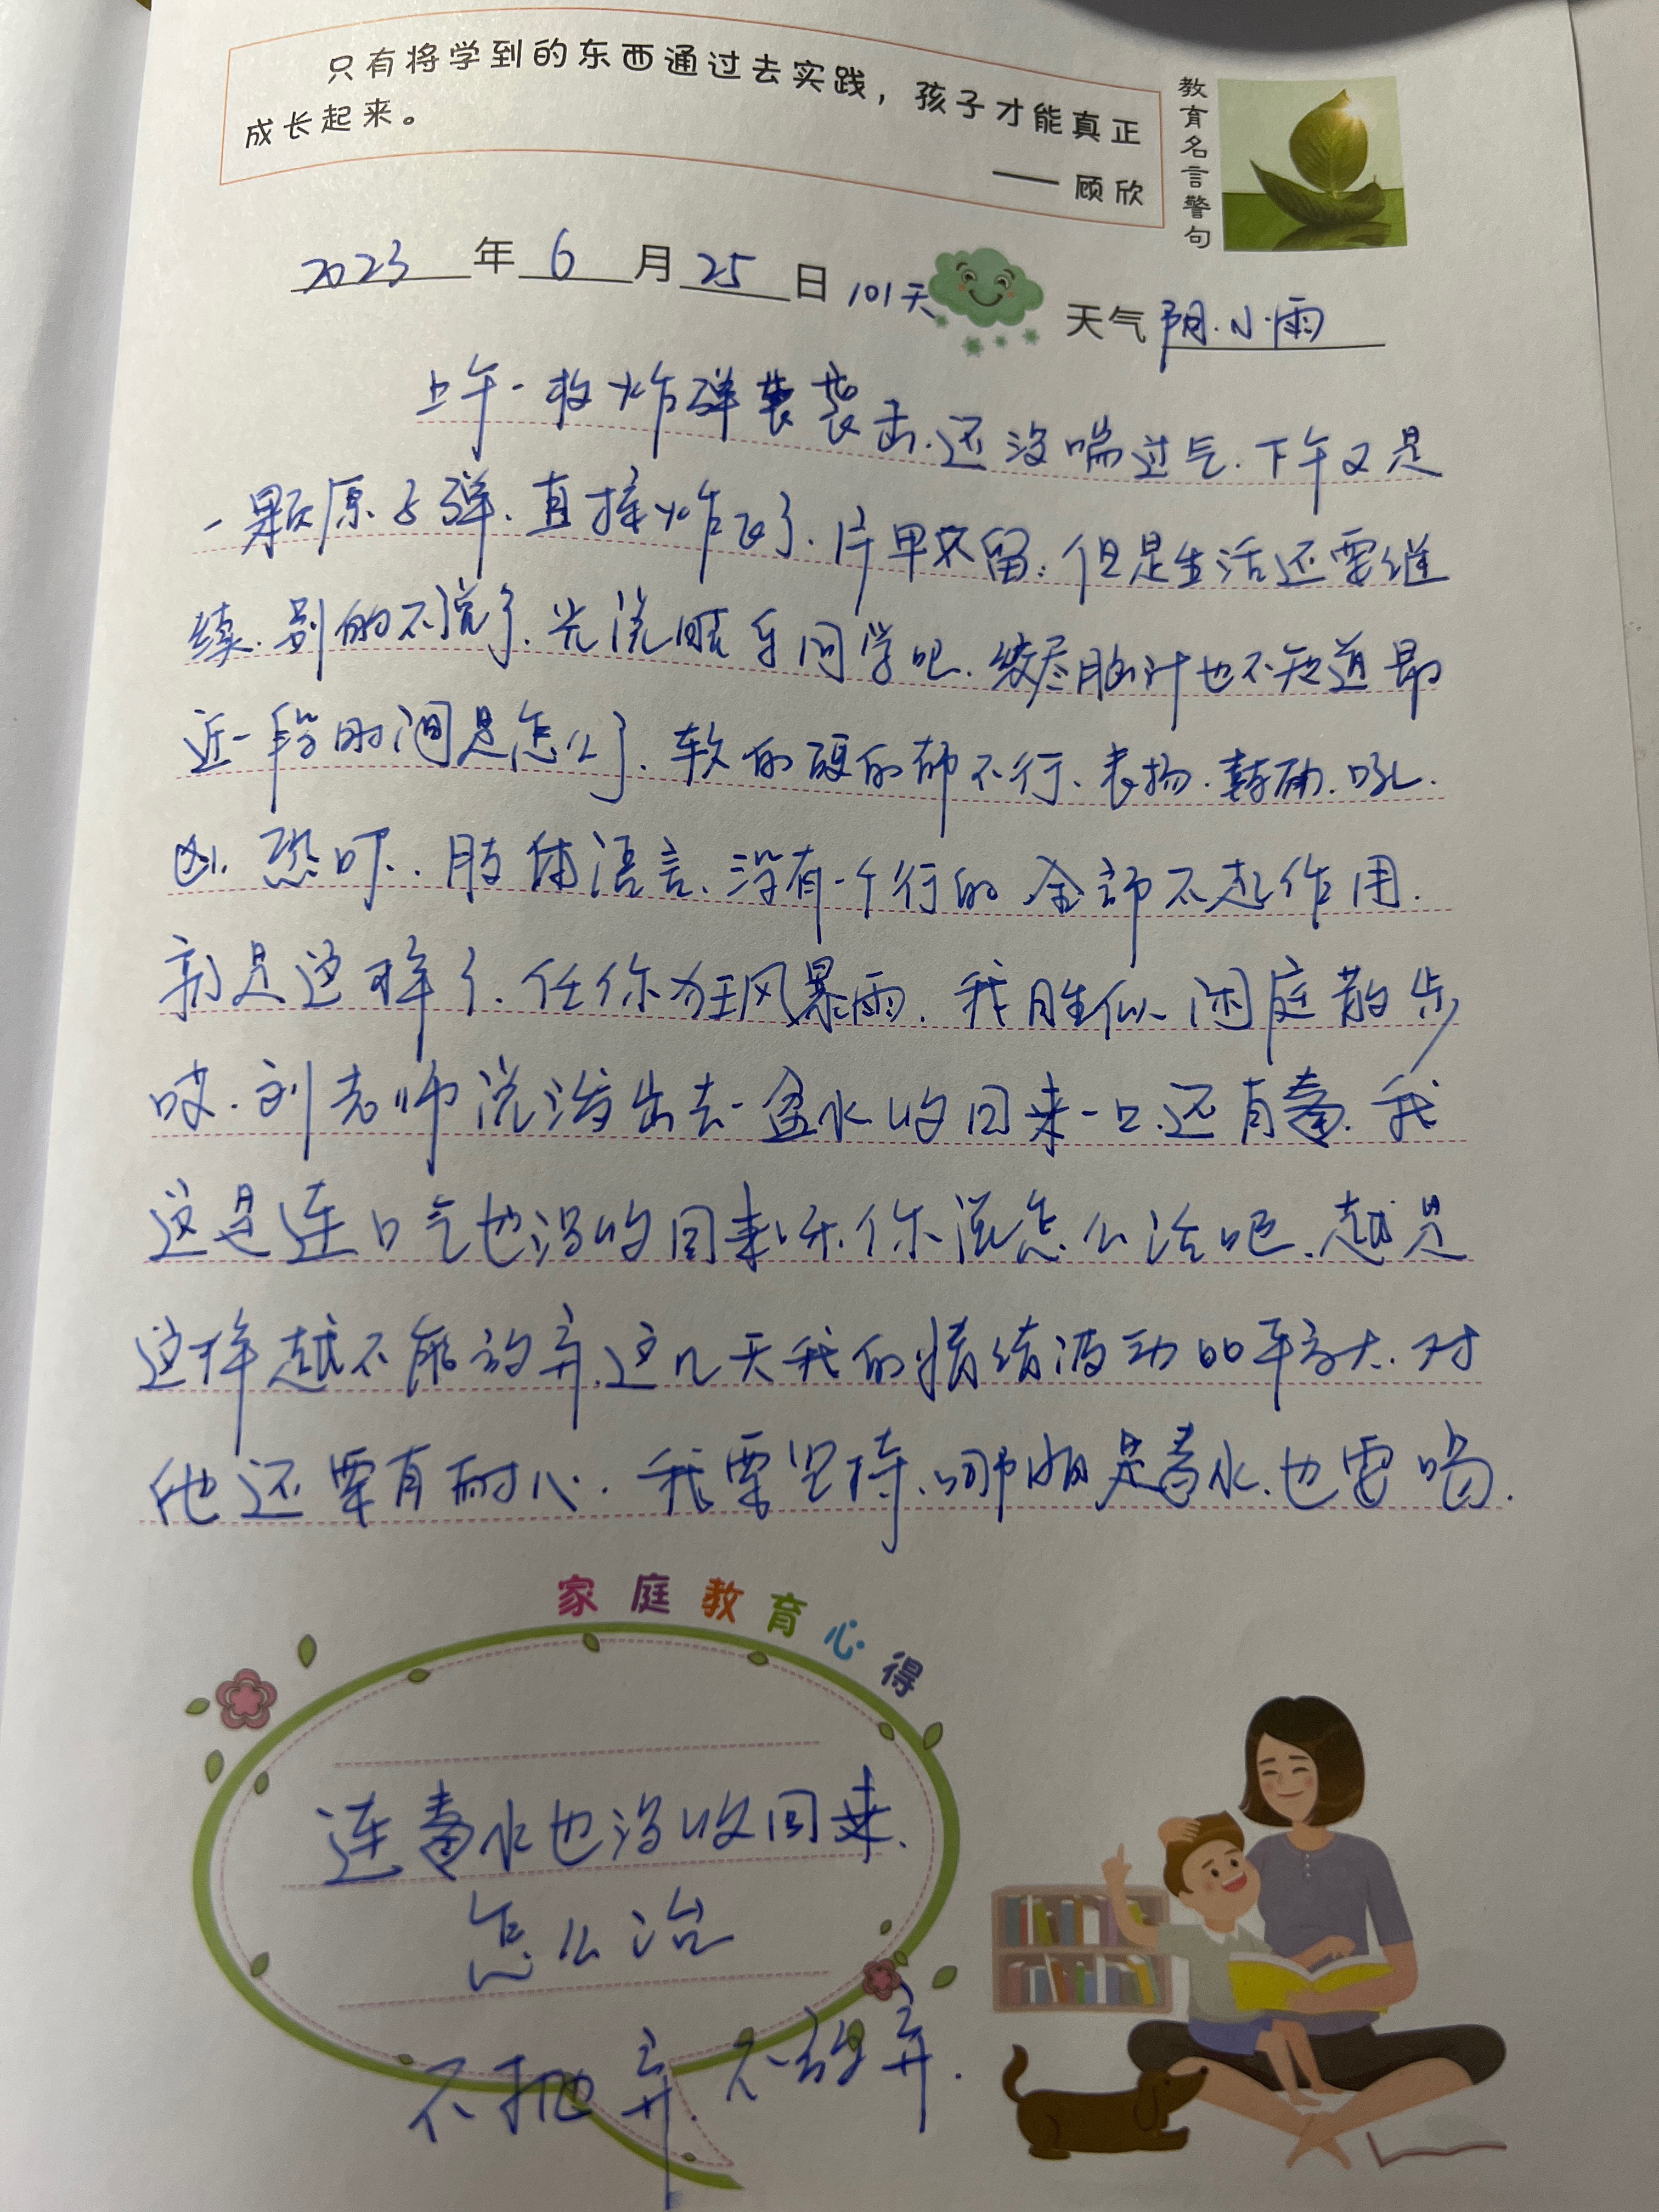 只有将学到的东西通过去实践，孩子才能真正
成长起来。
—— 顾欣
教育名言警句
2023 年 6 月 25 日 101天
天气 阴.小雨
上午一枚炸弹袭击.还没喘过气.下午又是
一颗原子弹.直接炸飞了.片甲不留.但是生活还要继
续.别的不说了.光说 乐同学吧.绞尽脑汁也不知道最
近一段时间是怎么了.软的硬的都不行.表扬.鼓励.吼.
凶.恐吓..肢体语言.没有一个行的 全部不起作用.
就是这样了.任你狂风暴雨.我胜似闲庭散步
哎.刘老师说泼出去一盆水收回来一口.还有毒.我
这是连口气也没收回来呀.你说怎么活吧.越是
这样越不能放弃.这几天我的情绪波动的 大.对
他还要有耐心.我要坚持.哪怕是毒水.也要喝.
家庭教育心得
连毒水也没收回来.
怎么治
不抛弃.不放弃.